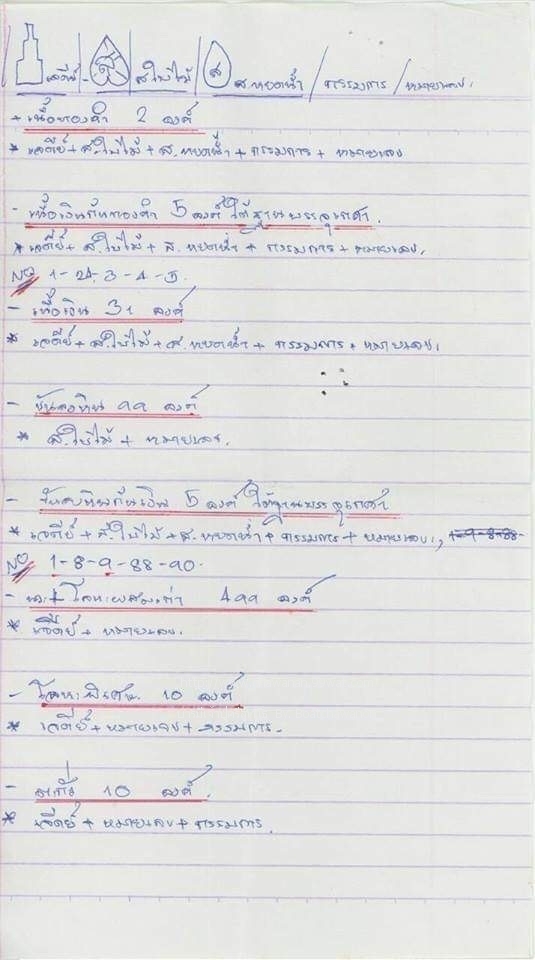 เจดีย์ - ส ส.ใบไม้ / ส ส.หยดน้ำ / กรรมการ / หมายเลข.
+ เนื้อทองคำ 2 องค์
* เจดีย์ + ส.ใบไม้ + ส.หยดน้ำ + กรรมการ + หมายเลข
- เนื้อเงินก้นทองคำ 5 องค์ ใต้ฐานบรรจุเกศา.
* เจดีย์ + ส.ใบไม้ + ส.หยดน้ำ + กรรมการ + หมายเลข.
NO 1-24, 3-4-5.
- เนื้อเงิน 31 องค์
* เจดีย์ + ส.ใบไม้ + ส.หยดน้ำ + กรรมการ + หมายเลข.
- ขันลงหิน 99 องค์
* ส.ใบไม้ + หมายเลข.
- ขันลงหินก้นเงิน 5 องค์ ใต้ฐานบรรจุเกศา
* เจดีย์ + ส.ใบไม้ + ส.หยดน้ำ + กรรมการ + หมายเลข,
NO 1-8-9-88-90.
- โลหะผสมเก่า 499 องค์
* เจดีย์ + หมายเลข.
- โลหะพิเศษ 10 องค์
* เจดีย์ + หมายเลข + กรรมการ.
- ตะกั่ว 10 องค์.
* เจดีย์ + หมายเลข + กรรมการ.